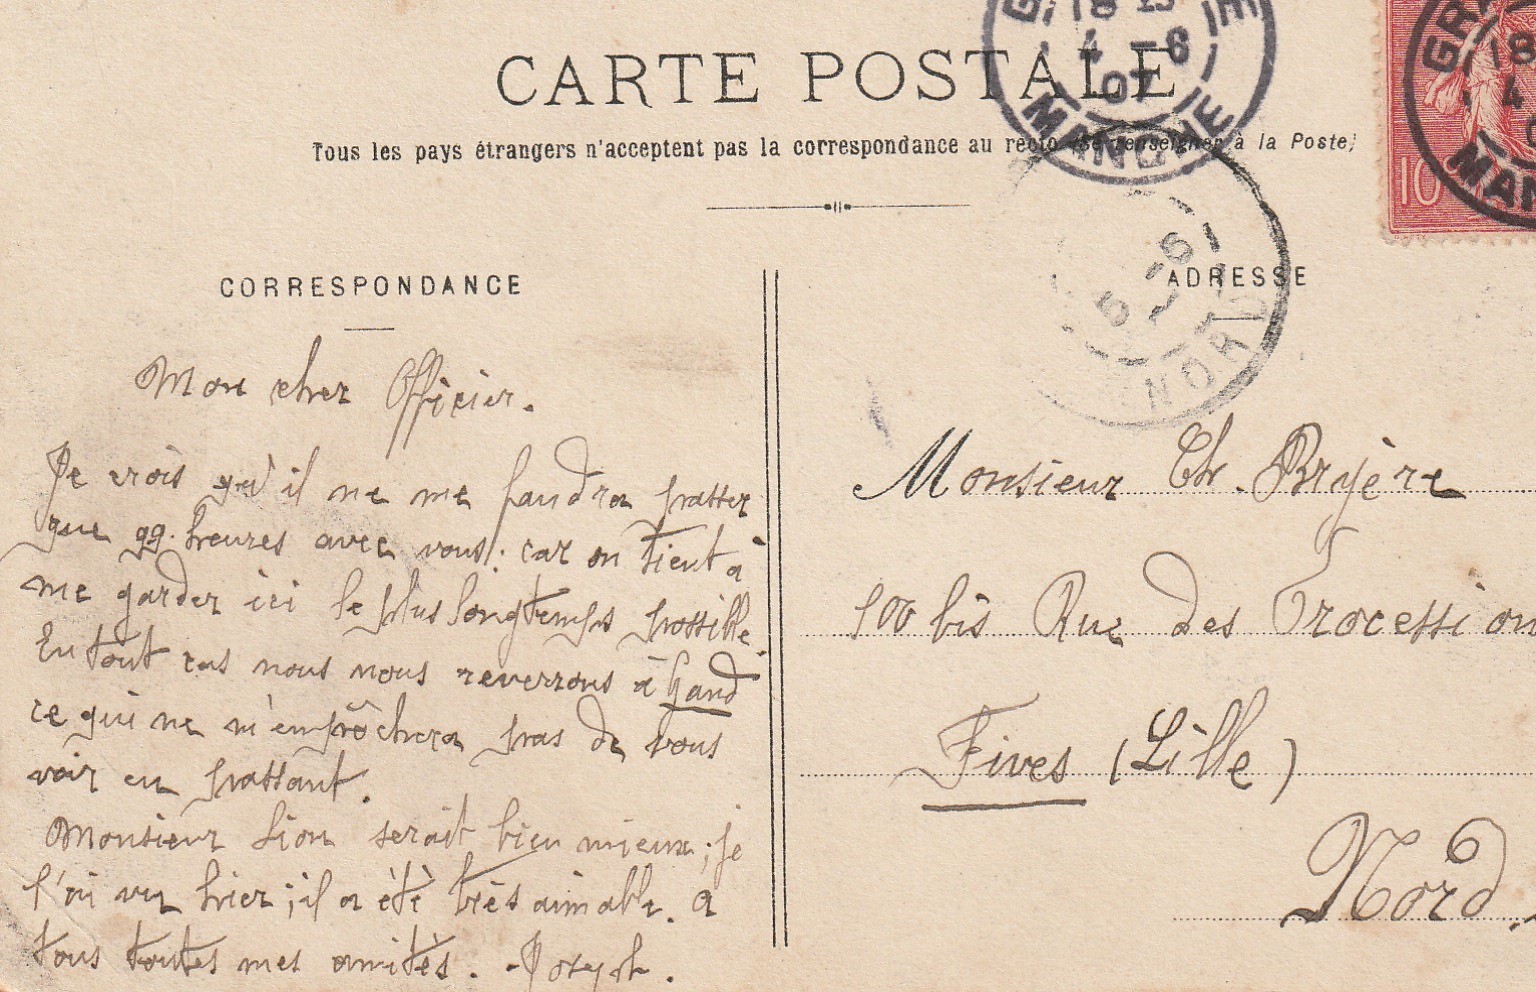 CARTE POSTALE
Tous les pays étrangers n'acceptent pas la correspondance au recto (se renseigner à la Poste)
18
4 - 6
07
MANCHE
GRA
18
4
MAN
10
5 - 6
NORD
CORRESPONDANCE
Mon cher Officier.
Je crois qu'il ne me faudra passer
que qq. heures avec vous; car on tient à
me garder ici le plus longtemps possible.
En tout cas nous nous reverrons à Gand
ce qui ne m'empêchera pas de vous
voir en passant.
Monsieur Lion serait bien mieux; je
l'ai vu hier; il a été très aimable. A
tous toutes mes amitiés. - Joseph.
ADRESSE
Monsieur Ch. Bryère
100 bis Rue des Procession
Fives (Lille)
Nord.